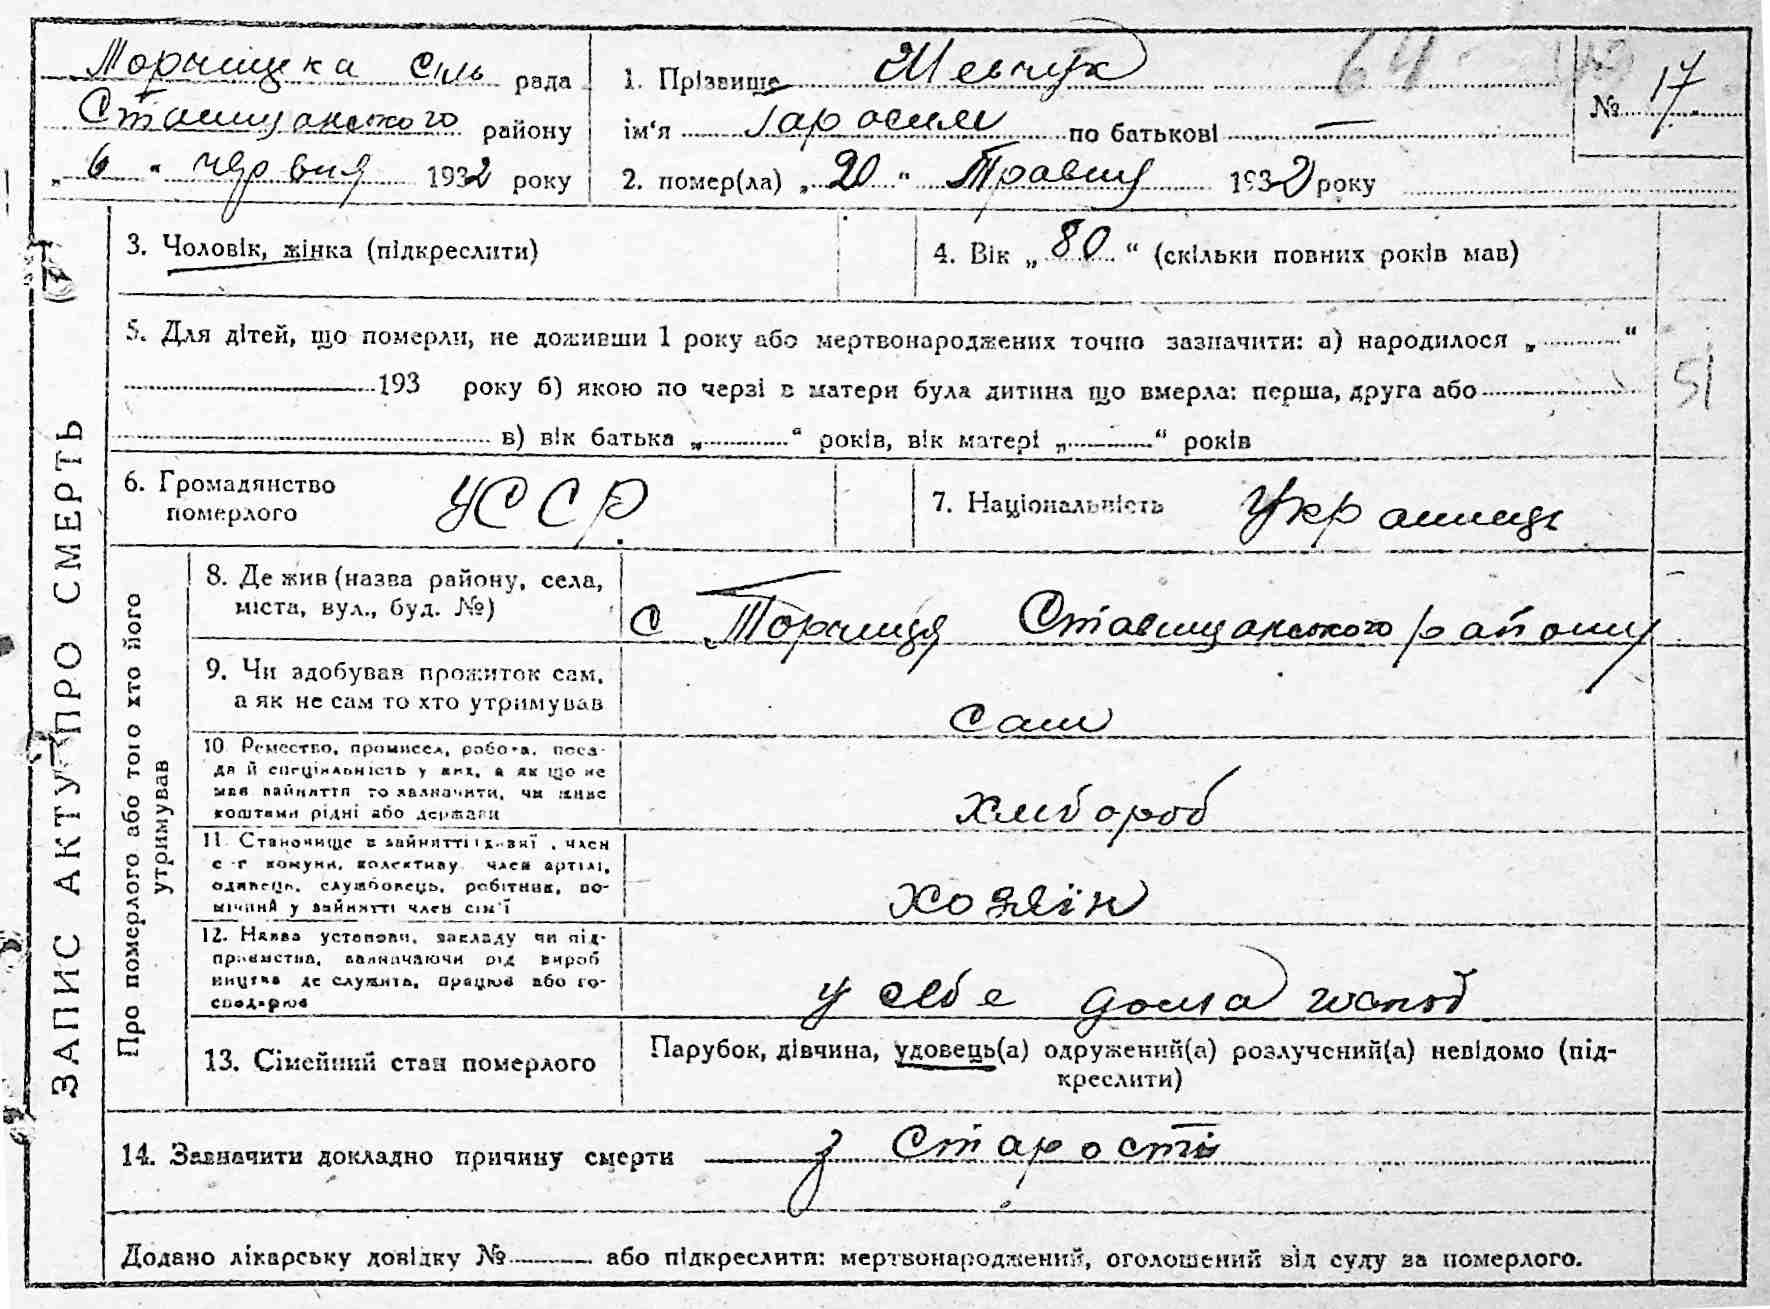 Торчицка сіль рада
Ставищанського району
„ 6 “ червня 1932 року
1. Прізвище Шевчук
ім‘я Гарасим по батькові —
2. помер(ла) „ 20 “ Травня 1932 року
64
№ 17
ЗАПИС АКТУ ПРО СМЕРТЬ
3. Чоловік, жінка (підкреслити)
4. Вік „ 80 “ (скільки повних років мав)
5. Для дітей, що померли, не доживши 1 року або мертвонароджених точно зазначити: а) народилося „ “
193 року б) якою по черзі в матери була дитина що вмерла: перша, друга або
в) вік батька „ “ років, вік матері „ “ років
51
6. Громадянство
померлого
УССР.
7. Національність Украинець
Про померлого або того хто його
утримував
8. Де жив (назва району, села,
міста, вул., буд. №)
с Торчиця Ставищанського району
9. Чи здобував прожиток сам,
а як не сам то хто утримував
сам
10. Ремество, промисел, робота, поса-
да й спеціяльність у них, а як що не
мав зайняття то зазначити, чи живе
коштами рідні або держави
хлибороб
11. Становище в зайнятті , член
с-г комуни, колективу, член артілі,
одинець, службовець, робітник, по-
мічний у зайнятті член сім‘ї
хозяїн
12. Назва установи, закладу чи під-
приємства, зазначаючи рід вироб
ництва де служить, працює або го-
сподарює
у себе дома господ
13. Сімейний стан померлого
Парубок, дівчина, удовець(а) одружений(а) розлучений(а) невідомо (під-
креслити)
14. Зазначити докладно причину смерти з старости
Додано лікарську довідку № або підкреслити: мертвонароджений, оголошений від суду за померлого.